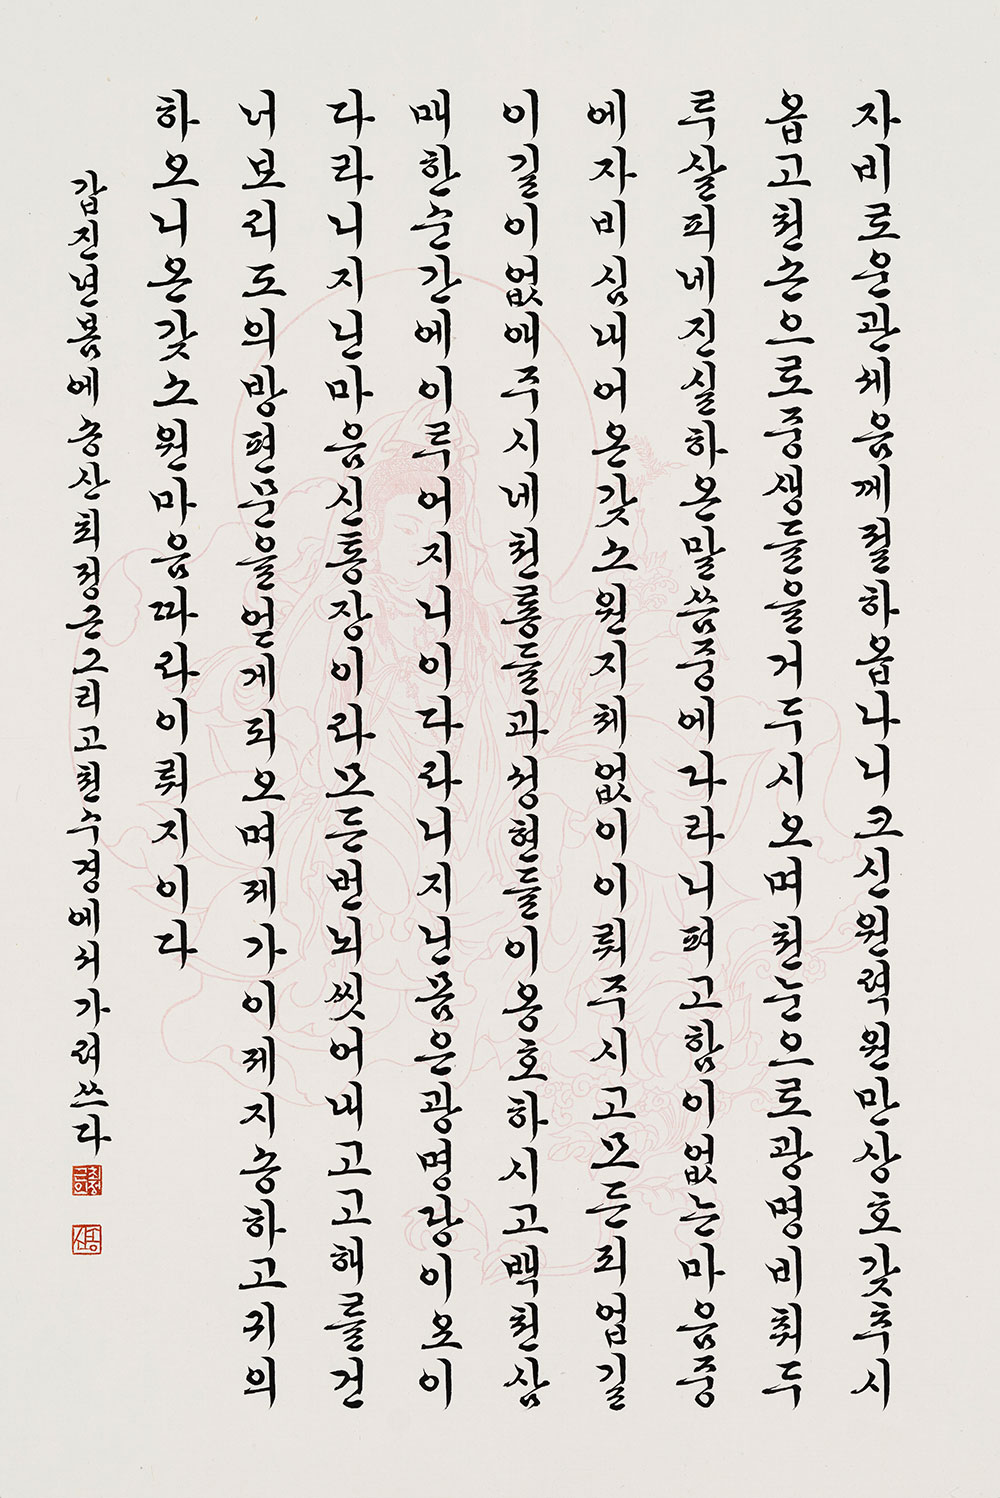 자비로운관세음께절하옵나니크신원력원만상호갖추시
옵고천손으로중생들을거두시오며천눈으로광명비춰두
루살피네진실하온말씀중에다라니펴고함이없는마음중
에자비심내어온갖소원지체없이이뤄주시고모든죄업길
이길이없애주시네천룡들과성현들이옹호하시고백천삼
매한순간에이루어지니이다라니지닌몸은광명당이오이
다라니지닌마음신통장이라모든번뇌씻어내고고해를건
너보리도의방편문을얻게되오며제가이제지송하고귀의
하오니온갖소원마음따라이뤄지이다
갑진년봄에송산최정근그리고천수경에서가려쓰다
최정근
송산